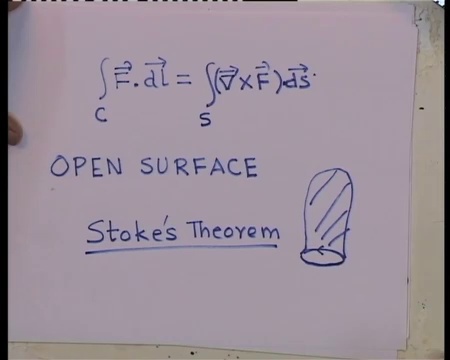 ∫ F⃗ . dl⃗ = ∫ (∇⃗ × F⃗) ds⃗
C S
OPEN SURFACE
Stoke's Theorem